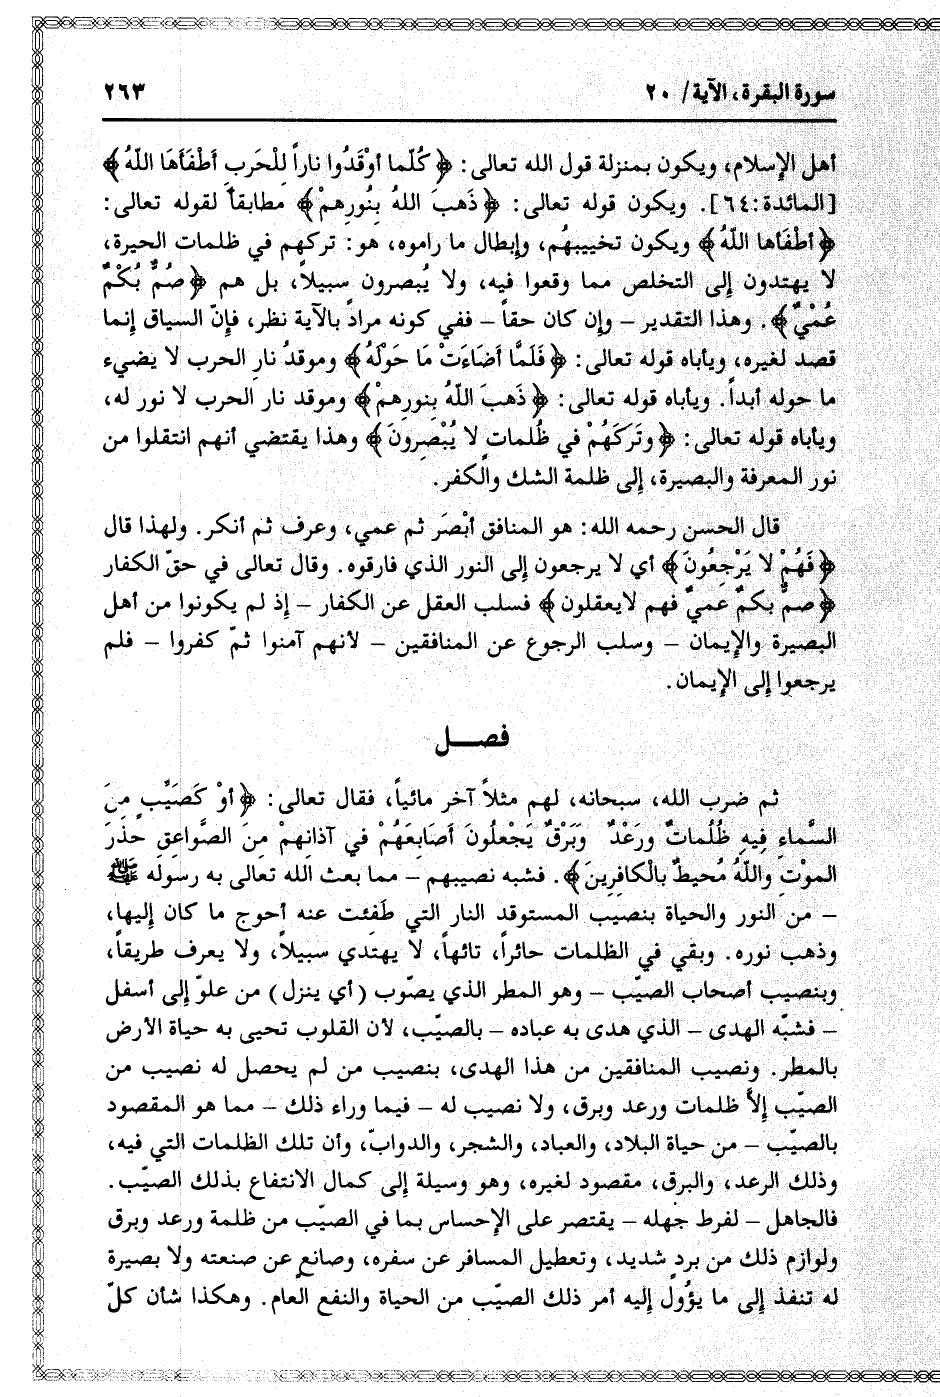 سورة البقرة، الآية/ ٢٠
٢٦٣
أهل الإسلام، ويكون بمنزلة قول الله تعالى: ﴿كُلّما أوْقَدُوا ناراً لِلْحَربِ أطْفَأهَا اللّهُ﴾
[المائدة:٦٤]. ويكون قوله تعالى: ﴿ذَهبَ اللهُ بِنُورِهِمْ﴾ مطابقاً لقوله تعالى:
﴿أطْفَأها اللّهُ﴾ ويكون تخييبهُم، وإبطال ما راموه، هو: تركهم في ظلمات الحيرة،
لا يهتدون إلى التخلص مما وقعوا فيه، ولا يُبصرون سبيلاً، بل هم ﴿صُمٌّ بُكْمٌ
عُمْيٌ﴾. وهذا التقدير – وإن كان حقاً – ففي كونه مراداً بالآية نظر، فإنّ السياق إنما
قصد لغيره، ويأباه قوله تعالى: ﴿فَلَمَّا أضَاءَتْ مَا حَوْلَهُ﴾ وموقدُ نار الحرب لا يضيء
ما حوله أبداً. ويأباه قوله تعالى: ﴿ذَهبَ اللّهُ بِنورِهمْ﴾ وموقد نار الحرب لا نور له،
ويأباه قوله تعالى: ﴿وتَركَهُمْ في ظُلماتٍ لا يُبْصِرونَ﴾ وهذا يقتضي أنهم انتقلوا من
نور المعرفة والبصيرة، إلى ظلمة الشك والكفر.
قال الحسن رحمه الله: هو المنافق أبْصَر ثم عمي، وعرف ثم أنكر. ولهذا قال
﴿فَهُمْ لا يَرْجِعُونَ﴾ أي لا يرجعون إلى النور الذي فارقوه. وقال تعالى في حقّ الكفار
﴿صمٌّ بكمٌ عميٌ فهم لايعقلون﴾ فسلب العقل عن الكفار – إذ لم يكونوا من أهل
البصيرة والإيمان – وسلب الرجوع عن المنافقين – لأنهم آمنوا ثمّ كفروا – فلم
يرجعوا إلى الإيمان.
فصــل
ثم ضرب الله، سبحانه، لهم مثلاً آخر مائياً، فقال تعالى: ﴿أوْ كَصَيَّبٍ مِنَ
السَّماءِ فِيهِ ظُلُماتٌ ورَعْدٌ وَبَرْقٌ يَجْعلُونَ أصَابِعَهُمْ في آذانِهمْ مِنَ الصَّواعِقِ حَذَرَ
الموْتِ واللّهُ مُحيطٌ بالْكافِرينَ﴾. فشبه نصيبهم – مما بعث الله تعالى به رسوله ﷺ
– من النور والحياة بنصيب المستوقد النار التي طَفِئت عنه أحوج ما كان إليها،
وذهب نوره. وبقي في الظلمات حائراً، تائهاً، لا يهتدي سبيلاً، ولا يعرف طريقاً،
وبنصيب أصحاب الصيّب – وهو المطر الذي يصوّب (أي ينزل) من علوّ إلى أسفل
– فشبّه الهدى – الذي هدى به عباده – بالصيّب، لأن القلوب تحيى به حياة الأرض
بالمطر. ونصيب المنافقين من هذا الهدى، بنصيب من لم يحصل له نصيب من
الصيّب إلاّ ظلمات ورعد وبرق، ولا نصيب له – فيما وراء ذلك – مما هو المقصود
بالصيّب – من حياة البلاد، والعباد، والشجر، والدوابّ، وأن تلك الظلمات التي فيه،
وذلك الرعد، والبرق، مقصود لغيره، وهو وسيلة إلى كمال الانتفاع بذلك الصيّب.
فالجاهل – لفرط جهله – يقتصر على الإحساس بما في الصيّب من ظلمة ورعد وبرق
ولوازم ذلك من بردٍ شديد، وتعطيل المسافر عن سفره، وصانعٍ عن صنعته ولا بصيرة
له تنفذ إلى ما يؤُول إليه أمر ذلك الصيّب من الحياة والنفع العام. وهكذا شأن كلّ